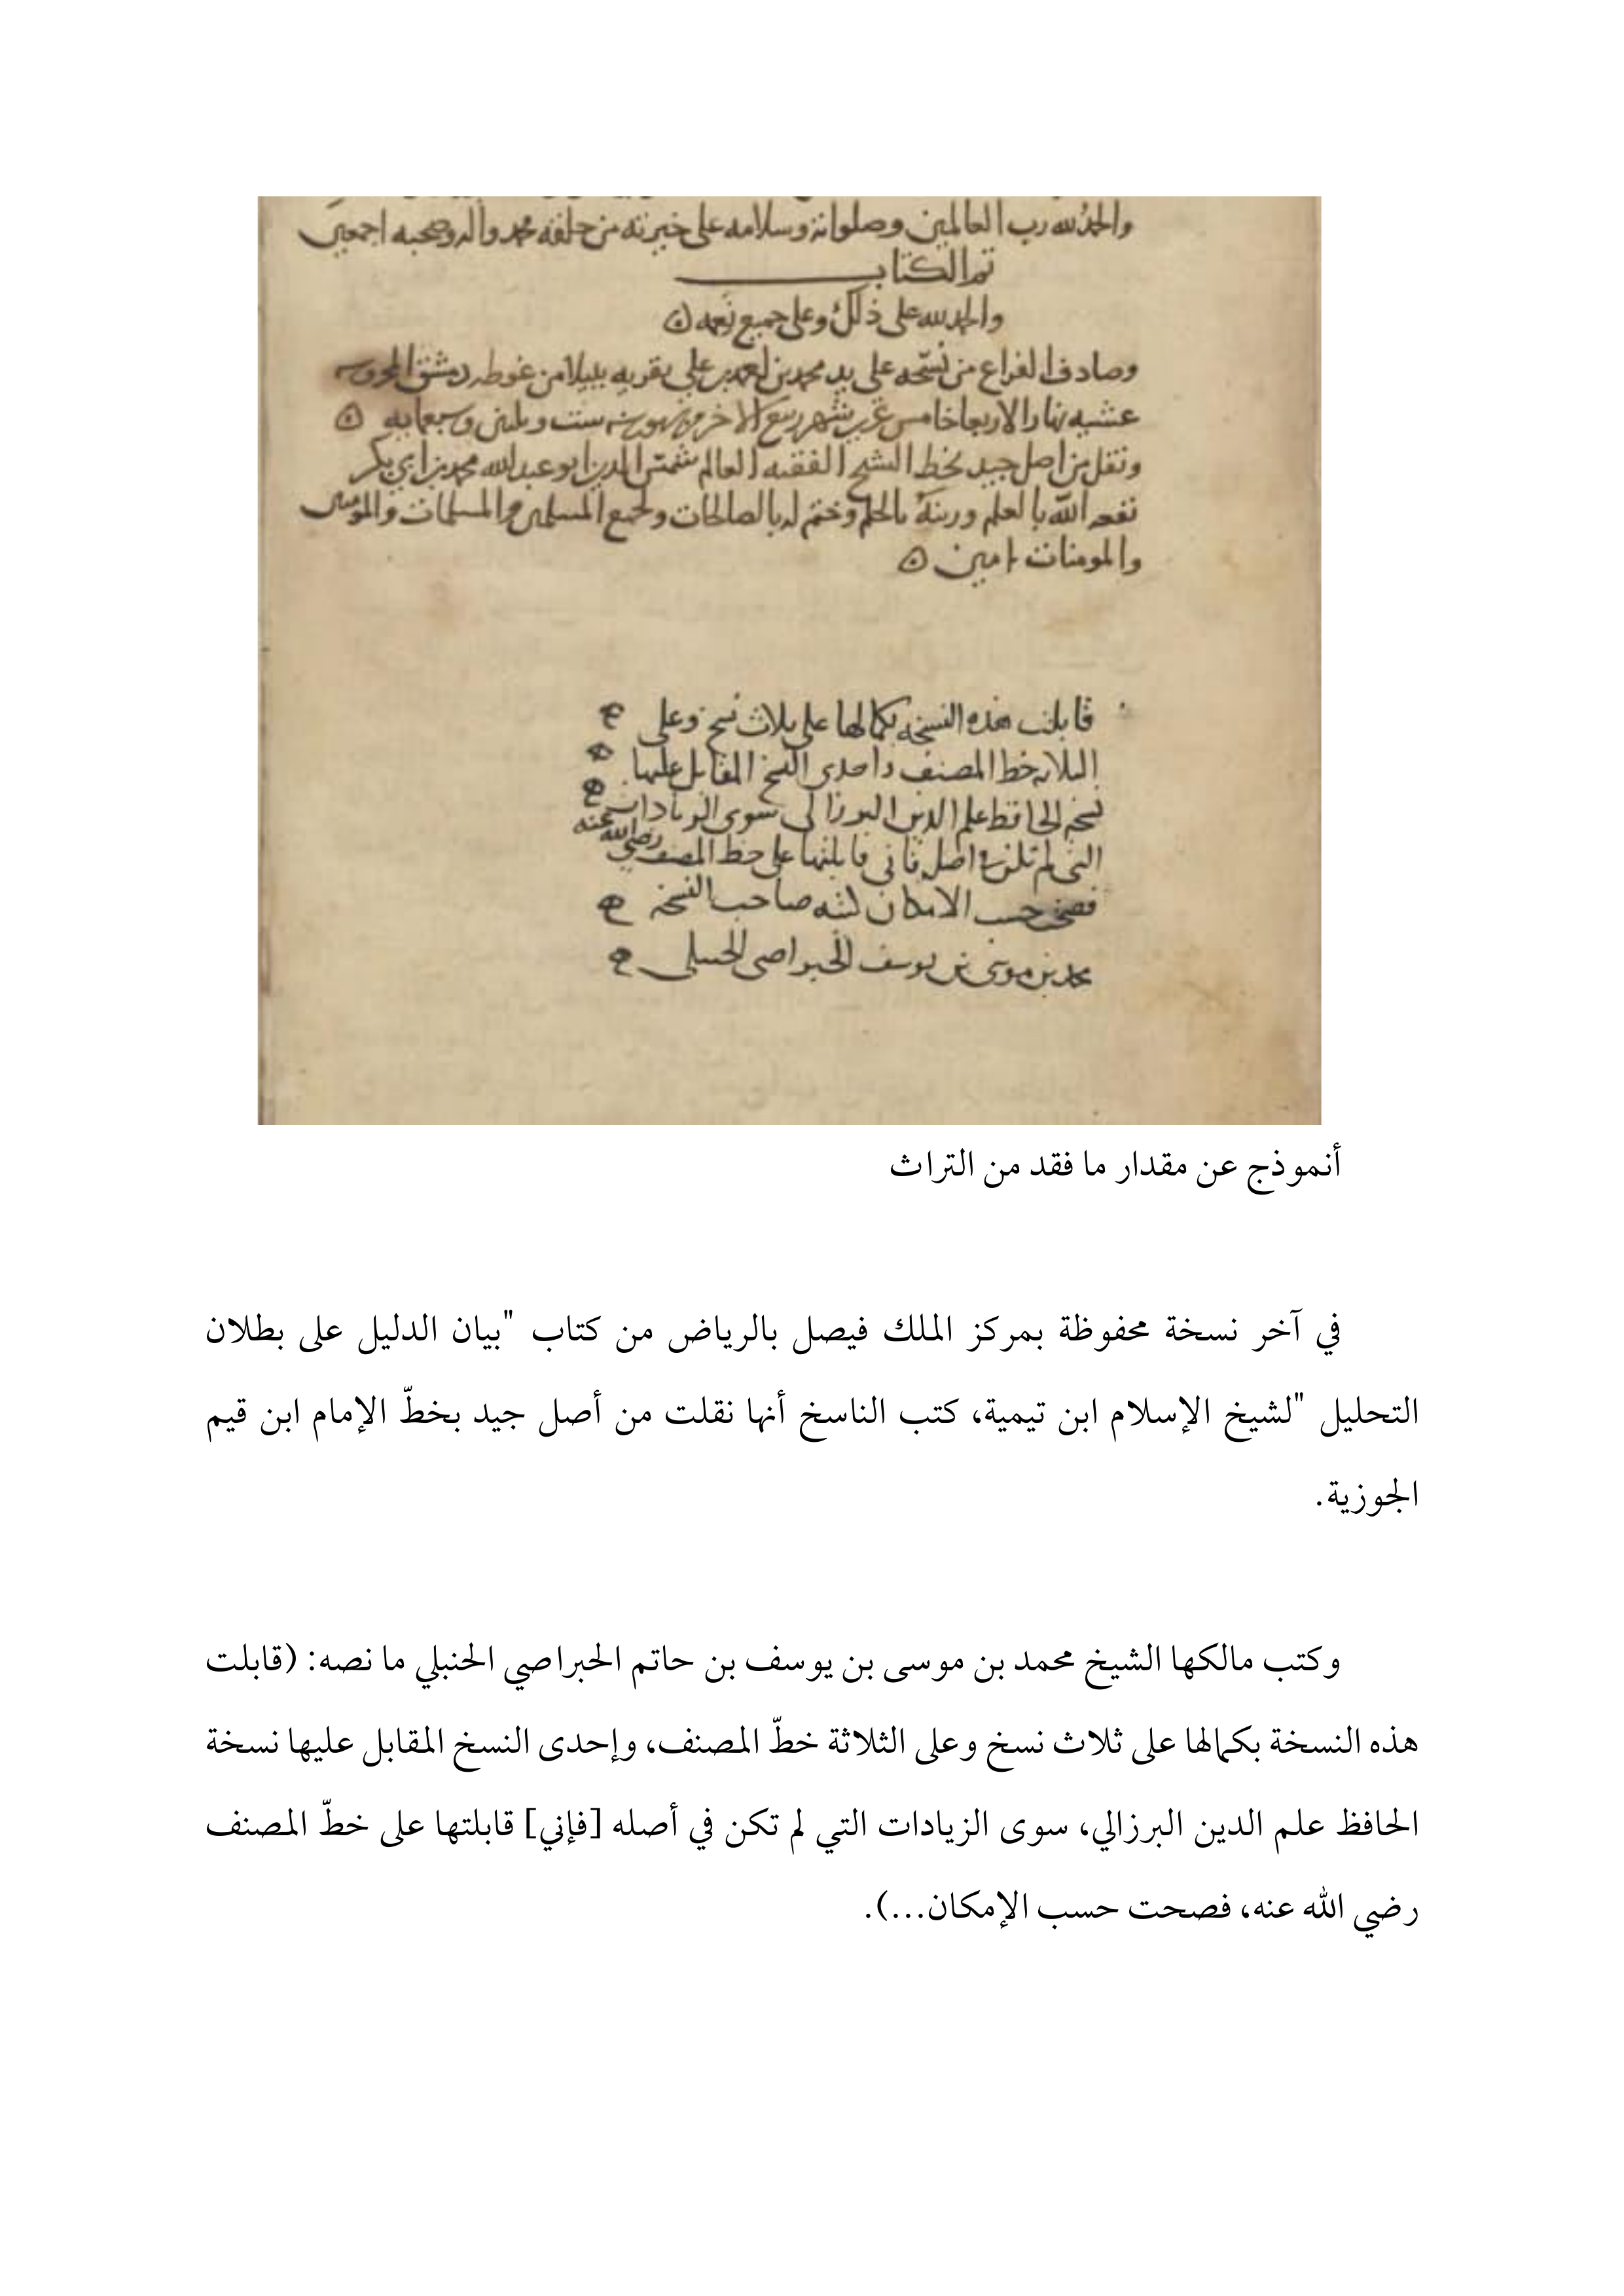 والحمد لله رب العالمين وصلواته وسلامه على خيرته من خلقه محمد واله وصحبه اجمعين
تم الكتاب
والحمد لله على ذلك وعلى جميع نعمه
وصادف الفراغ من نسخه على يد محمد بن علي بقرية بيبلا من غوطه دمشق المحروسه
عشيه نهار الاربعا خامس شهر ربيع الاخر ست وثلثين وسبعمايه
ونقل من اصل جيد بخط الشيخ الفقيه العالم شمس الدين ابو عبد الله محمد بن ابي بكر
نفعه الله بالعلم وزينه بالحلم وختم له بالصالحات ولجميع المسلمين والمسلمات والمومنين
والمومنات امين
قابلت هذه النسخه بكمالها على ثلاث نسخ وعلى
الثلاثه خط المصنف واحدى النسخ المقابل عليها
نسخه الحافظ علم الدين البرزالي سوى الزيادات
التي لم تكن في اصله فاني قابلتها على خط المصنف رضي الله عنه
فصحت حسب الامكان كتبه صاحب النسخه
محمد بن موسى بن يوسف الحبراصي الحنبلي
أنموذج عن مقدار ما فقد من التراث
في آخر نسخة محفوظة بمركز الملك فيصل بالرياض من كتاب "بيان الدليل على بطلان
التحليل "لشيخ الإسلام ابن تيمية، كتب الناسخ أنها نقلت من أصل جيد بخطّ الإمام ابن قيم
الجوزية.
وكتب مالكها الشيخ محمد بن موسى بن يوسف بن حاتم الحبراصي الحنبلي ما نصه: (قابلت
هذه النسخة بكمالها على ثلاث نسخ وعلى الثلاثة خطّ المصنف، وإحدى النسخ المقابل عليها نسخة
الحافظ علم الدين البرزالي، سوى الزيادات التي لم تكن في أصله [فإني] قابلتها على خطّ المصنف
رضي الله عنه، فصحت حسب الإمكان...).